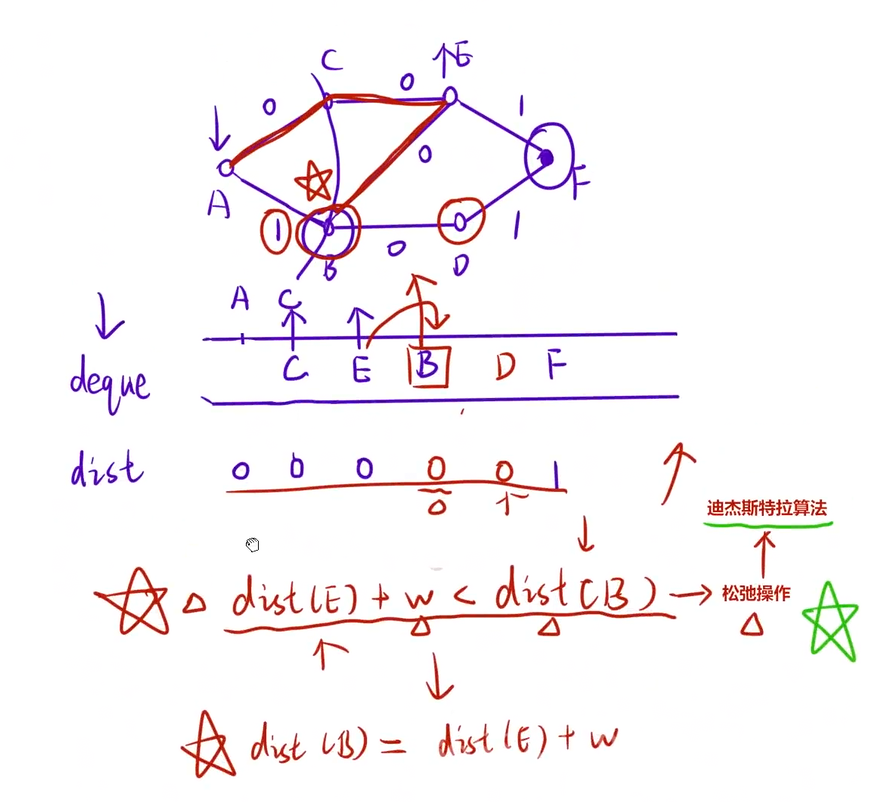 C
↑E
0
0
1
↓
0
A
F
1
0
1
B
D
A C
↓
C E B D F
deque
dist
0 0 0 0 0 1
迪杰斯特拉算法
△ dist(E) + w < dist(B) → 松弛操作
dist(B) = dist(E) + w